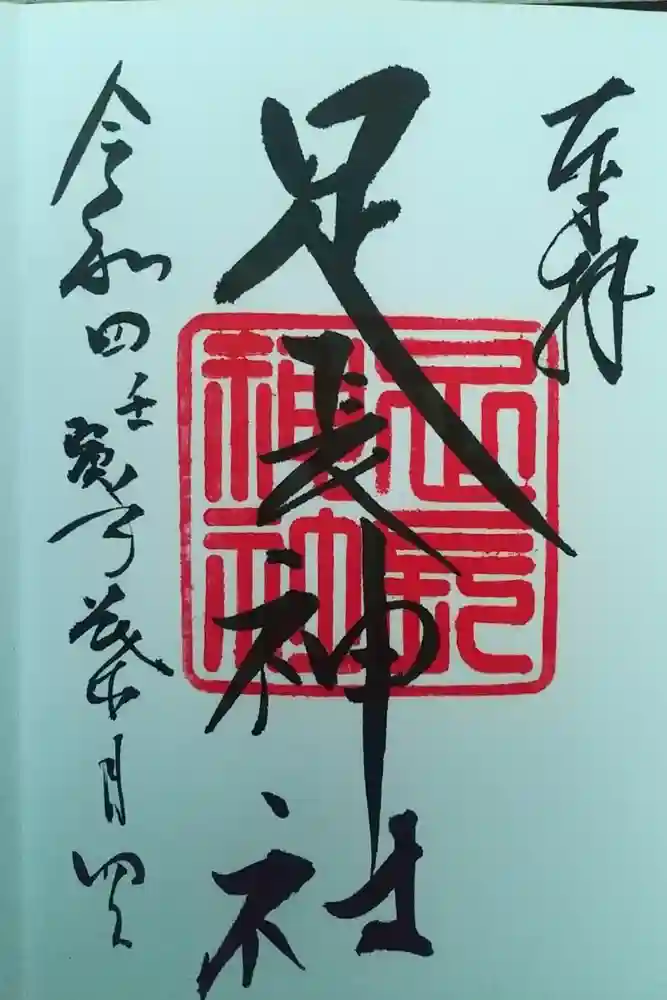 奉拝
足長神社
足長神社
令和四壬寅年葉月四日